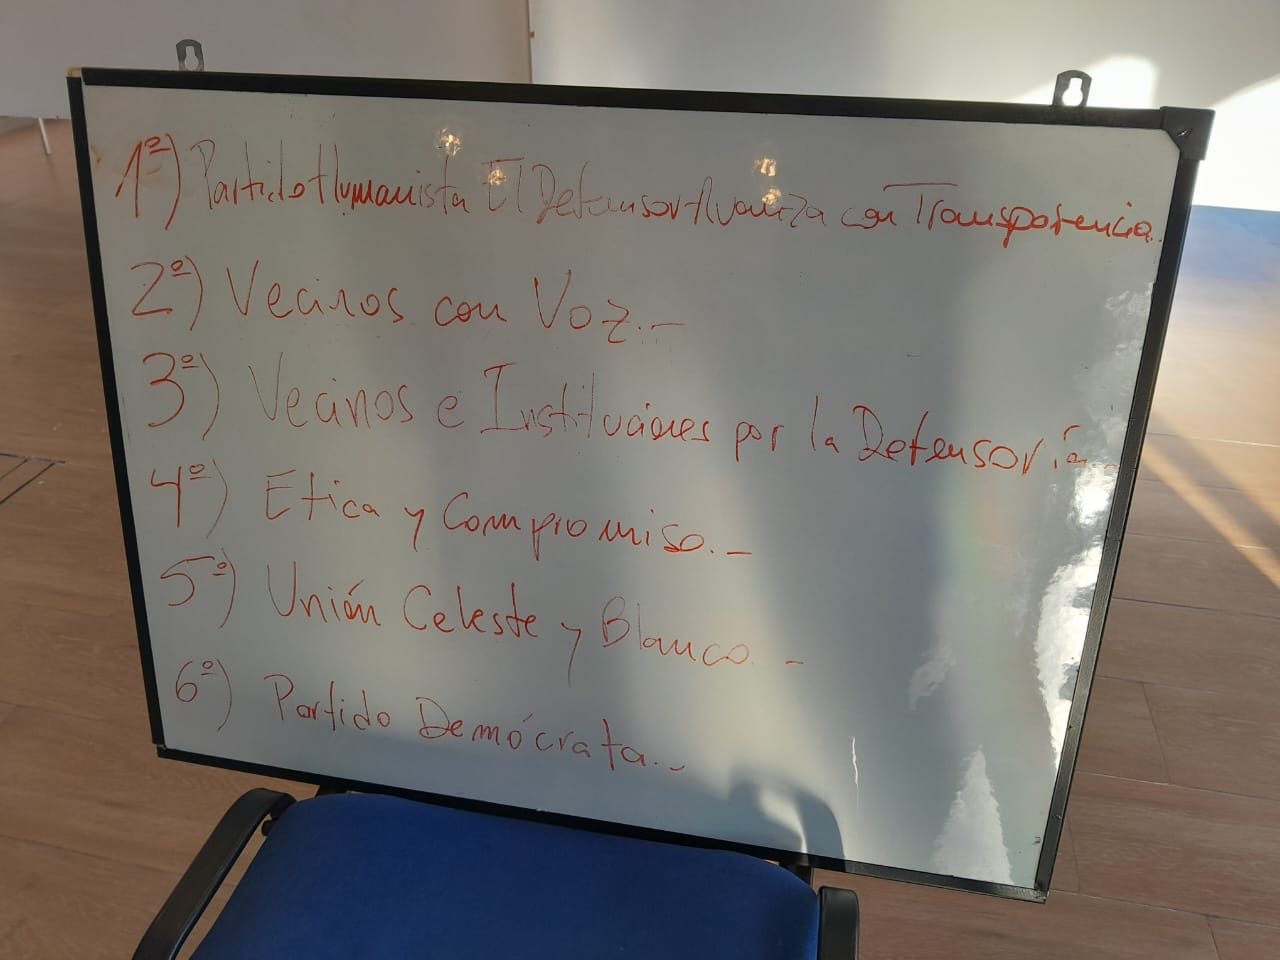 1º) Partido Humanista El Defensor Avanza con Transparencia.
2º) Vecinos con Voz.-
3º) Vecinos e Instituciones por la Defensoría.-
4º) Etica y Compromiso.-
5º) Unión Celeste y Blanco.-
6º) Partido Demócrata.-